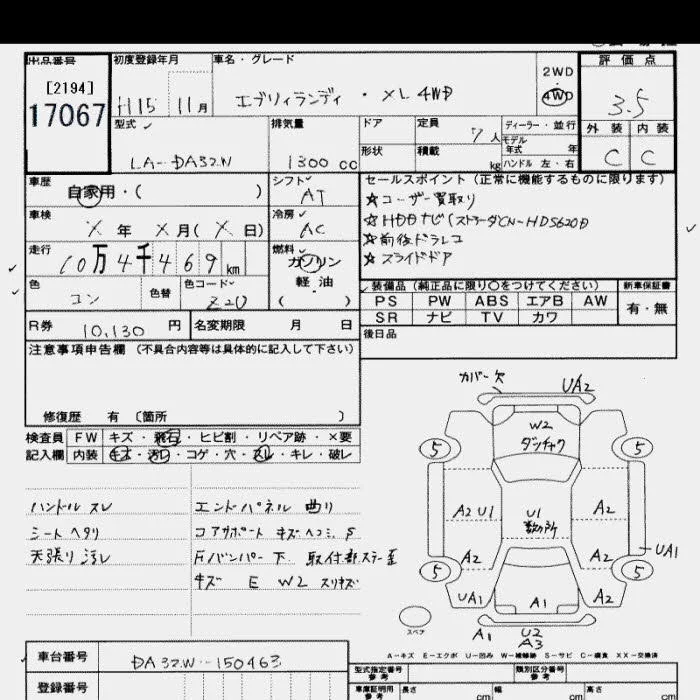 出品番号
[2194]
17067
初度登録年月
H15 11月
車名・グレード
エブリィランディ・XL 4WD
2WD
4WD
評価点
3.5
外装 内装
C C
型式
LA-DA32W
排気量
1300 cc
ドア
形状
定員 7人
積載 kg
ディーラー・並行
モデル
年式 年
ハンドル 左・右
車歴
自家用・( )
シフト
AT
車検
X年 X月(X日)
冷房
AC
走行
10万4千469km
燃料
ガソリン
軽油
( )
色
コン
色替
色コード
Z2U
R券 10,130円
名変期限 月 日
セールスポイント(正常に機能するものに限ります)
☆ユーザー買取り
☆HDDナビ(ストラーダCN-HDS620D
☆前後ドラレコ
☆スライドドア
装備品(純正品に限り○をつけてください)
PS PW ABS エアB AW
SR ナビ TV カワ
新車保証書
有・無
後日品
注意事項申告欄(不具合内容等は具体的に記入して下さい)
修復歴 有 〔箇所 〕
検査員 FW キズ・飛石・ヒビ割・リペア跡・×要
記入欄 内装 キズ・汚レ・コゲ・穴・スレ・キレ・破レ
ハンドル スレ
シート ヘタリ
天張り 汚レ
エンドパネル 曲り
コアサポート キズ ヘコミ S
Fバンパー 下 取付部 ステー歪
キズ E W2 スリキズ
カバー欠
UA2
W2
ダッチャク
5 5
A2 U1
U1
数カ所
A2
A2
A2
UA1
5 5
UA1
A1
A2
スペア
A1
U2
A3
A-キズ E-エクボ U-凹み W-補修跡 S-サビ C-腐食 XX-交換済
車台番号
DA32W-150463
登録番号
型式指定番号
参考
類別区分番号
参考
車庫証明用
参考
長さ cm
幅 cm
高さ cm